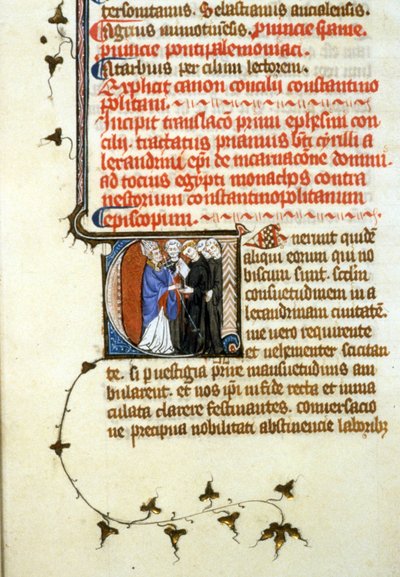 tersonitanus. Selastianus aucalensis.
Eagrius inmotinesis. Prouincie spanie.
prouincie ponti palemoniaci.
Atarbius per cilum lectorem.
Explicit canon concilii constantino
politani.
Incipit translacio primi ephesini con
cilii. tractatus primus bti cyrilli a
lexandrini epi de incarnacone domini.
ad tocius egypti monachos contra
nestorium constantinopolitanum
episcopum.
Enerunt quidē
aliqui eorum qui no
biscum sunt.
consuetudinem in a
lexandrinam ciuitatē.
me uero requirente
et uehementer sciscitan
te. si p uestigia prime mansuetudinis am
bularent. et nos ipi in fide recta et inma
culata clarere festinantes. conuersacio
ne precipua nobilitati abstinencie laboribz